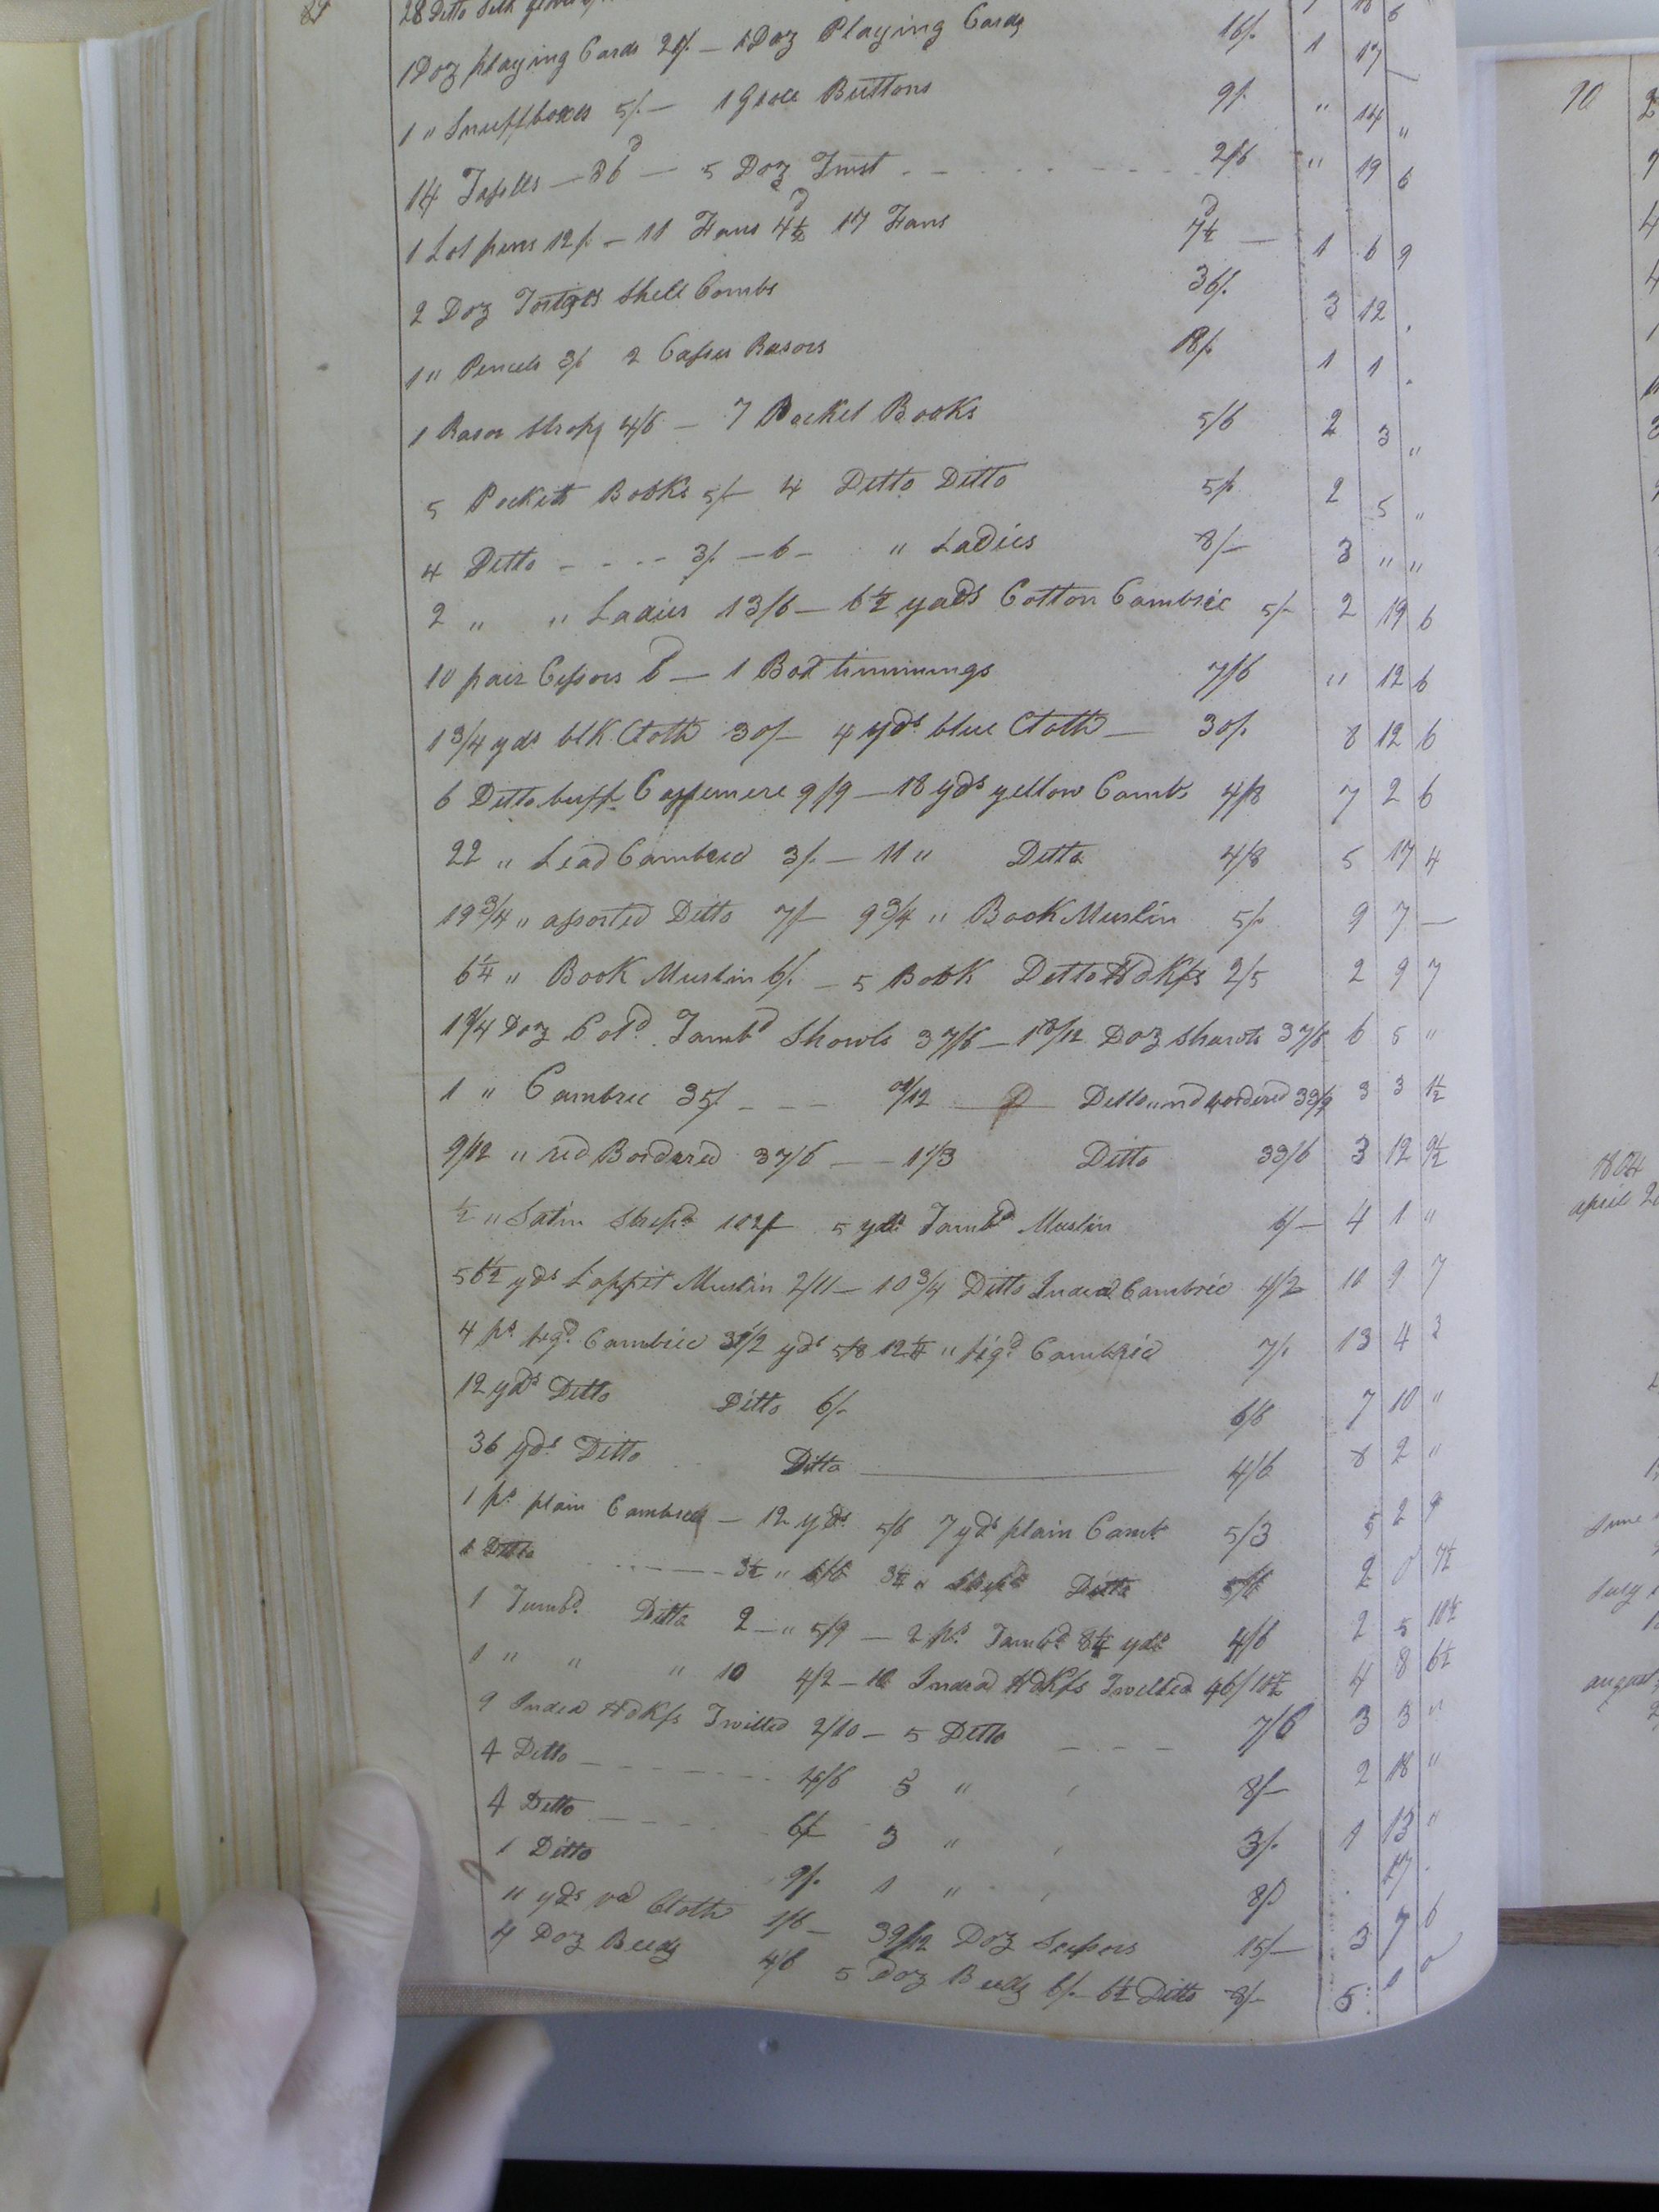 28 Ditto Silk
1 Doz playing Cards 21/. — 1 Doz Playing Cards 16/. 1 17 —
1 " Snuffboxes 5/. — 1 Groce Buttons 9/. " 14 "
14 Tassells — 6d — 5 Doz Twist - - - - 2/6 " 19 6
1 Lot pens 12/. — 11 Fans 4½d 17 Fans 7½d — 1 6 9
2 Doz Shell Combs 36/. 3 12 .
1 " Pencels 3/. 2 Casses Rasors 18/. 1 1 .
1 Rasor Strop 4/6 — 7 Pocket Books 5/6 2 3 "
5 Pockett Books 5/— 4 Ditto Ditto 5/. 2 5 "
4 Ditto - - - - 3/. — 6 — " Ladies 8/— 3 " "
2 " " Ladies 13/6 — 6½ yads Cotton Cambric 5/— 2 19 6
10 pair Cissors 6d — 1 Box timmings 7/6 " 12 6
1 3/4 yds blk Cloth 30/— 4 yds blue Cloth — 30/. 8 12 6
6 Ditto buff Cassemere 9/9 — 18 yds yellow Camb 4/8 7 2 6
22 " Lead Cambric 3/. — 11 " Ditto 4/8 5 17 4
19 3/4 " assorted Ditto 7/— 9 3/4 " Book Muslin 5/. 9 7 —
6¼ " Book Muslin 6/. — 5 Book Ditto Hdkfs 2/5 2 9 7
1 3/4 Doz Cold Tambd Showls 37/6 — 1 7/12 Doz Shawls 37/6 6 5 "
1 " Cambric 35/. - - - 10/12 — Ditto 33/9 3 3 1½
9/12 " red Bordered 37/6 — — 1 1/3 Ditto 33/6 3 12 9½
½ " Satin Stripd 102/— 5 yds Tambd Muslin 6/— 4 1 "
56½ yds Lappit Muslin 2/11 — 10 3/4 Ditto India Cambric 4/2 10 9 7
4 ps figd Cambric 31½ yds 5/8 12¼ " figd Cambric 7/. 13 4 3
12 yds Ditto Ditto 6/— 6/6 7 10 "
36 yds Ditto Ditto — 4/6 8 2 "
1 ps plain Cambric — 12 yds 5/6 7 yds plain Camb 5/3 5 2 9
1 Ditto - - - - 3½ " 6/6 3¼ " Stripd Ditto 2 7½
1 Tambd Ditto 2 — " 5/9 — 2 ps Tambd 8¼ yds 4/6 2 5 10½
1 " " " 10 4/2 — 10 India Hdkfs Twilled 46/10½ 4 8 6½
9 India Hdkfs Twilled 2/10 — 5 Ditto - - - 7/6 3 3 "
4 Ditto - - - - 4/6 5 " 8/— 2 18 "
4 Ditto - - - - 6/— 3 " 3/. 1 13 "
1 Ditto 9/. 1 " 8/. . 17 .
11 yds Cloth 1/6 — 3 9/12 Doz Scissors 15/— 3 7 6
4 Doz Beeds 4/6 5 Doz Beeds 6/— 6½ Ditto 8/— 5 0
10
1804
april
June
July
august